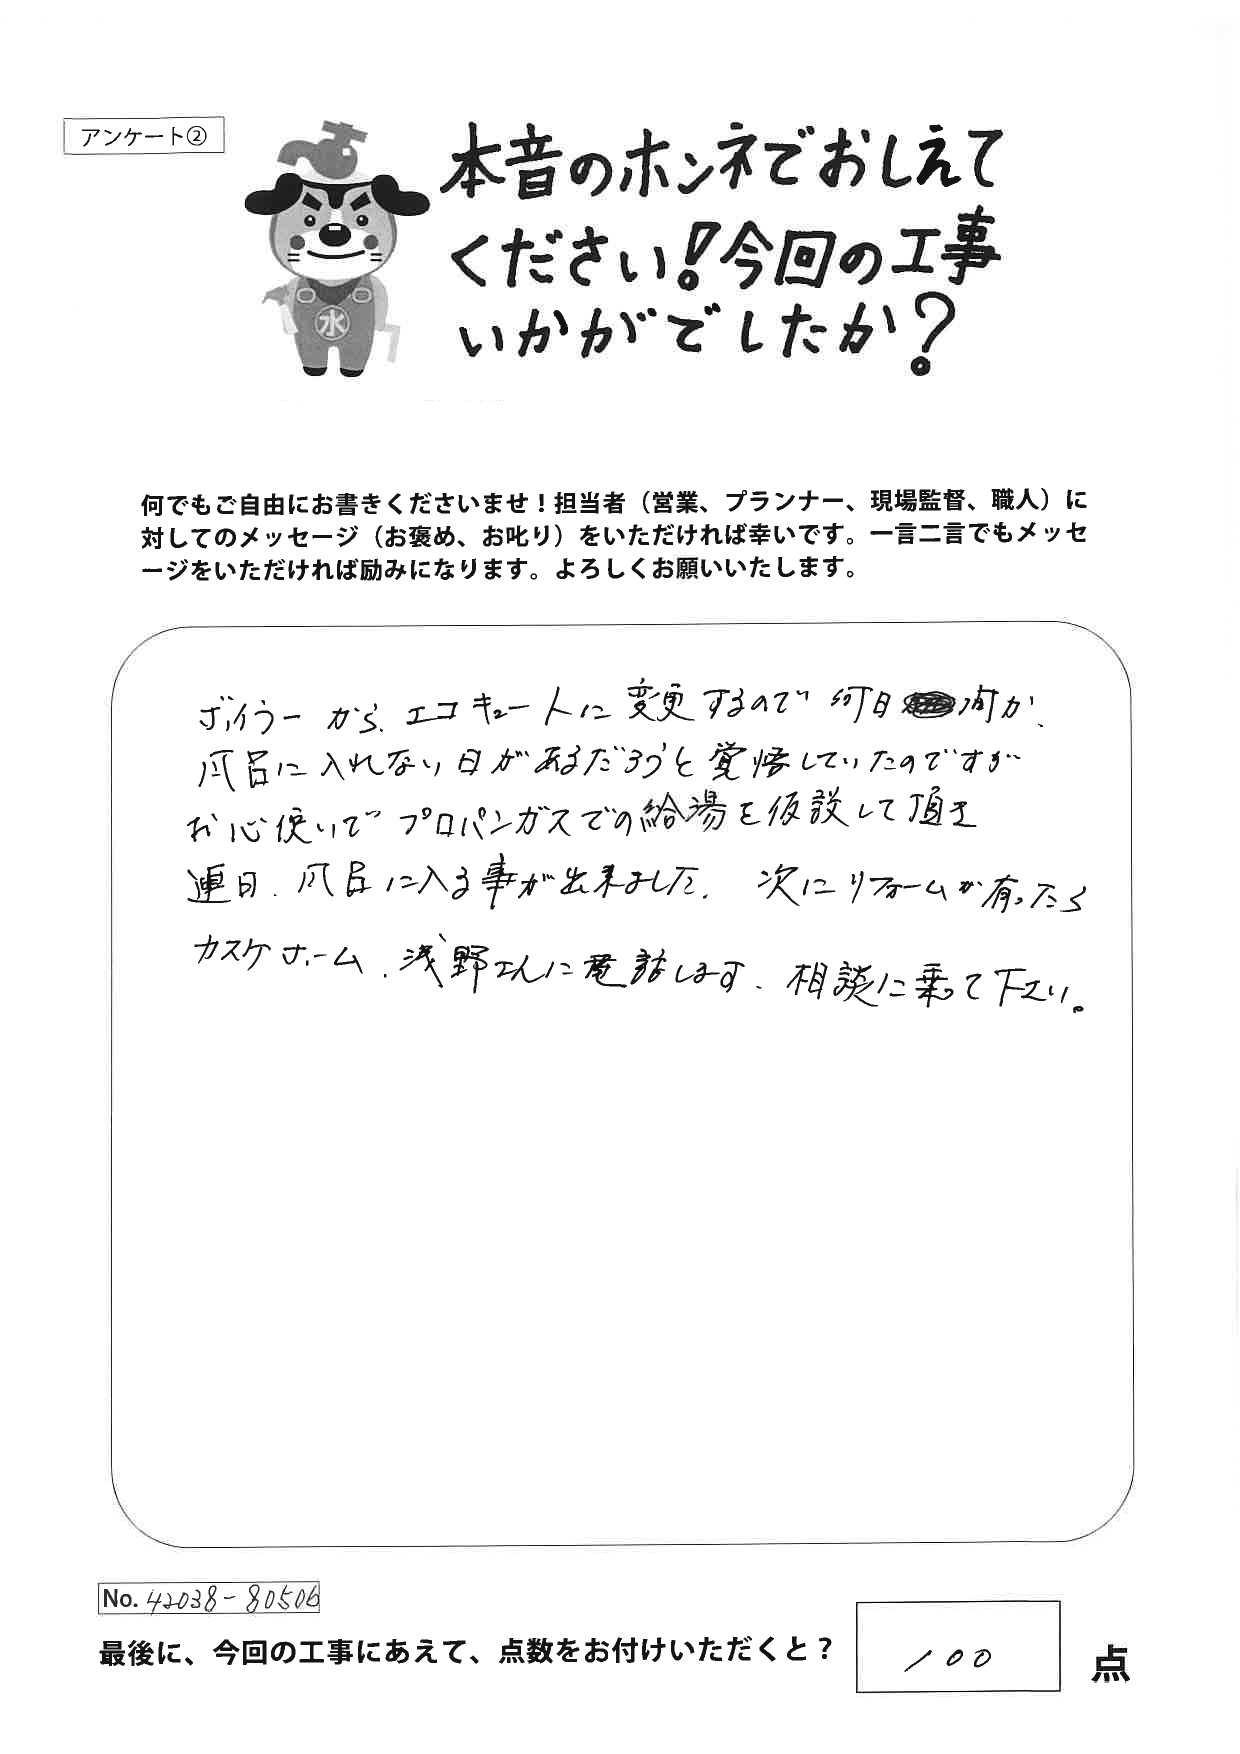 アンケート②
本音のホンネでおしえて
ください!今回の工事
いかがでしたか?
水
何でもご自由にお書きくださいませ!担当者(営業、プランナー、現場監督、職人)に
対してのメッセージ(お褒め、お叱り)をいただければ幸いです。一言二言でもメッセ
ージをいただければ励みになります。よろしくお願いいたします。
ボイラーから、エコキュートに変更するので何日間か、
風呂に入れない日があるだろうと覚悟していたのですが
お心使いでプロパンガスでの給湯を仮設して頂き
連日、風呂に入る事が出来ました。次にリフォームが有ったら
カスケホーム、浅野さんに電話します、相談に乗って下さい。
No. 42038-80506
最後に、今回の工事にあえて、点数をお付けいただくと?
100 点